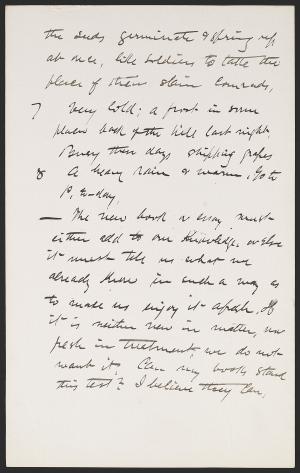 the seeds germinate & spring up
at once, like soldiers to take the
place of their slain comrads.
7 Very cold; a frost in some
places back of the hill last night.
Busy these days shipping grapes
8 A heavy rain & warm. Go to
P. to-day.
— The new book or essay must
either add to our knowledge, or else
it must tell us what we
already know in such a way as
to make us enjoy it afresh. If
it is neither new in matter, nor
fresh in treatment, we do not
want it. Can my books stand
this test? I believe they can.